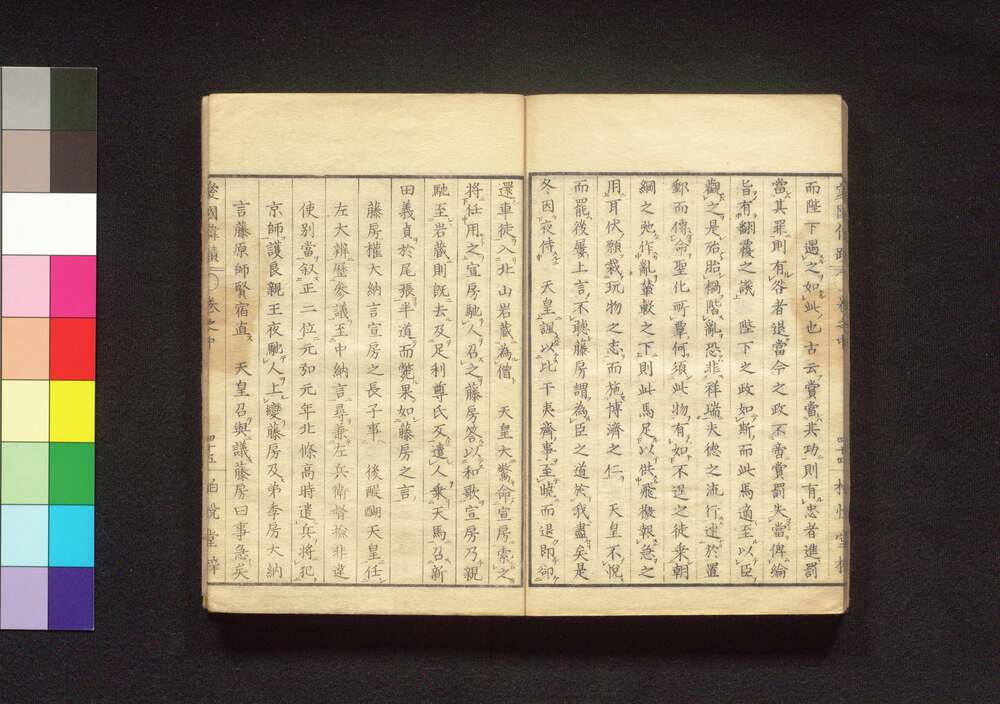 而陛下遇之如此也古云賞當其功則有忠者進罰
當其罪則有咎者退當今之政不啻賞罰失當俾綸
旨有翻覆之譏 陛下之政如斯而此馬適至以臣
觀之是殆胎禍階亂恐非祥瑞夫德之流行速於置
郵而傳命聖化所覃何須此物有如不逞之徒乘朝
綱之弛作亂輦轂之下則此馬足以供飛檄報急之
用耳伏願裁玩物之志而施博濟之仁 天皇不悅
而罷後屢上言不聽藤房謂為臣之道於我盡矣是
冬因夜侍 天皇諷以比干夷齊事至曉而退即卻
還車徒入北山岩藏為僧 天皇大驚命宣房索之
將任用之宣房馳人召之藤房答以和歌宣房乃親
馳至岩藏則既去及足利尊氏反遣人乘天馬召新
田義貞於尾張半道而斃果如藤房之言
藤房權大納言宣房之長子事 後醍醐天皇任
左大辨歷參議至中納言尋兼左兵衛督撿非違
使別當叙正二位元弘元年北條高時遣兵將犯
京師護良親王夜馳人上變藤房及弟季房大納
言藤原師賢宿直 天皇召與議藤房曰事急矣
愛國偉績 卷之中 四十五 有悅堂梓